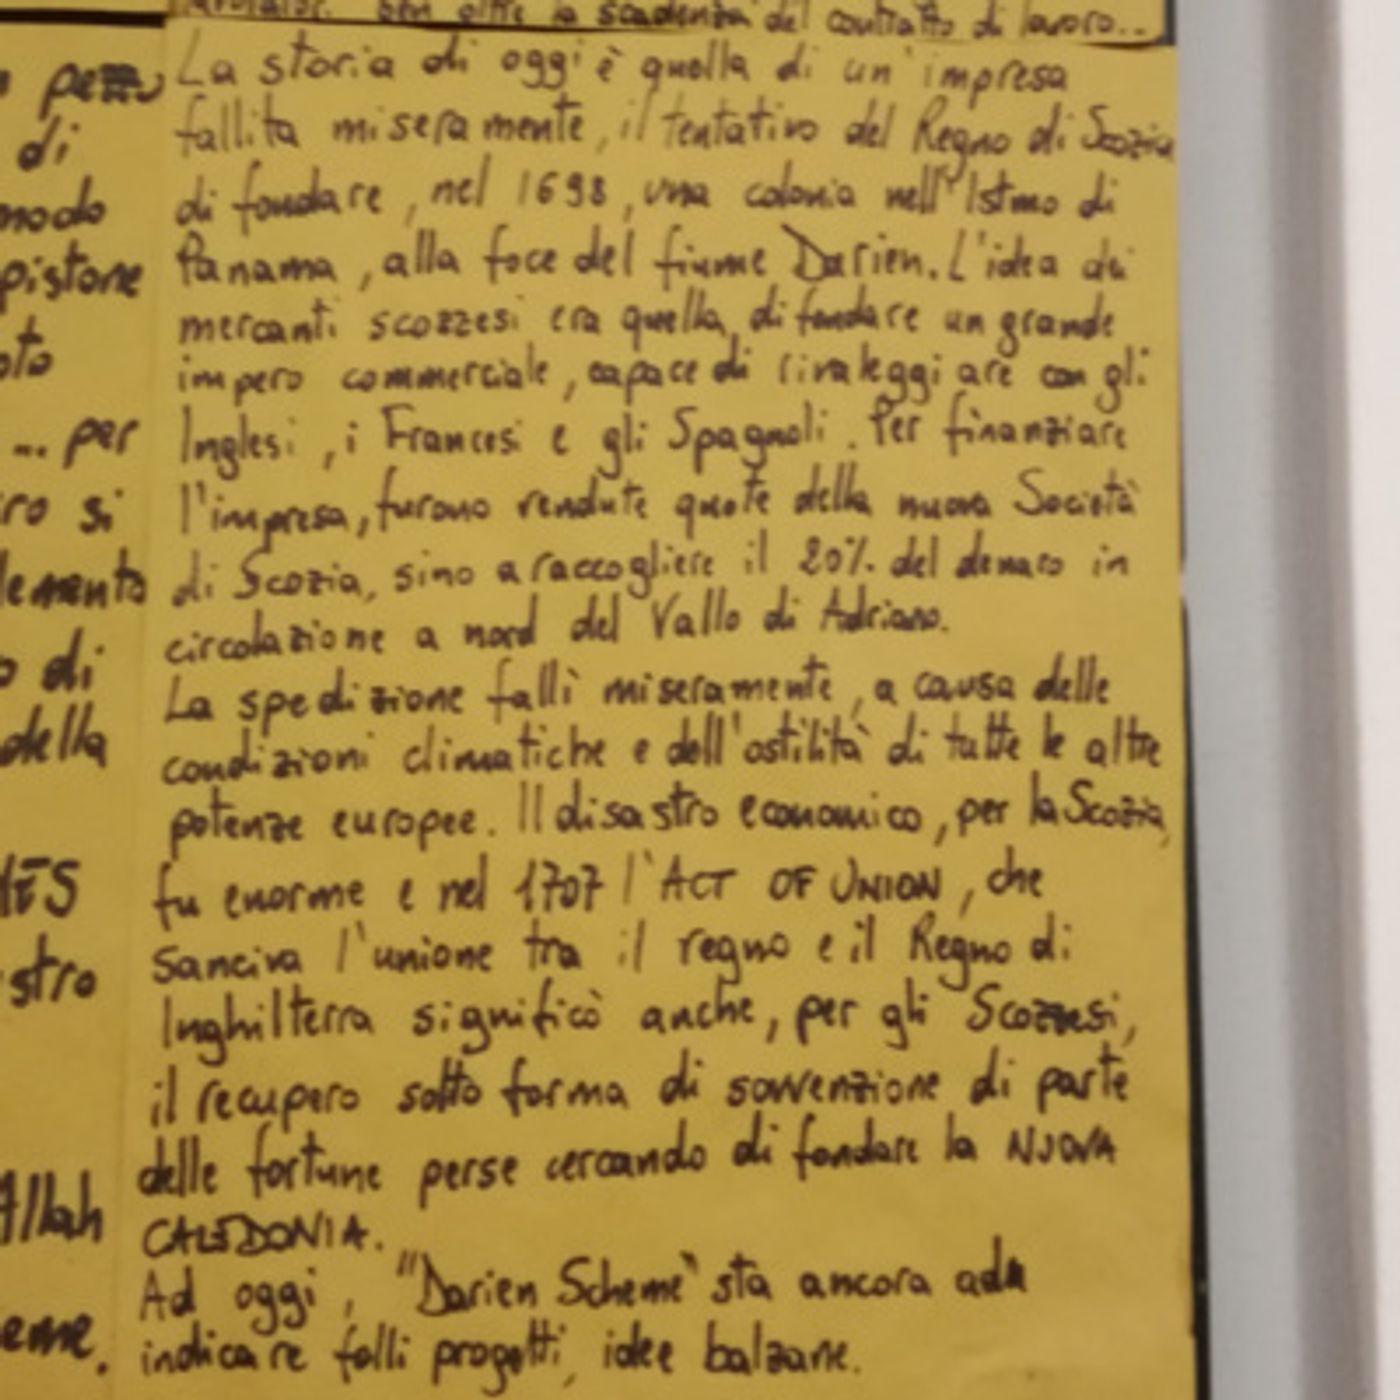 ben oltre la scadenza del contratto di lavoro...
La storia di oggi è quella di un'impresa
fallita miseramente, il tentativo del Regno di Scozia
di fondare, nel 1698, una colonia nell'Istmo di
Panama, alla foce del fiume Darien. L'idea dei
mercanti scozzesi era quella di fondare un grande
impero commerciale, capace di rivaleggiare con gli
Inglesi, i Francesi e gli Spagnoli. Per finanziare
l'impresa, furono vendute quote della nuova Società
di Scozia, sino a raccogliere il 20% del denaro in
circolazione a nord del Vallo di Adriano.
La spedizione fallì miseramente, a causa delle
condizioni climatiche e dell'ostilità di tutte le altre
potenze europee. Il disastro economico, per la Scozia,
fu enorme e nel 1707 l'ACT OF UNION, che
sanciva l'unione tra il regno e il Regno di
Inghilterra significò anche, per gli Scozzesi,
il recupero sotto forma di sovvenzione di parte
delle fortune perse cercando di fondare la NUOVA
CALEDONIA.
Ad oggi, "Darien Scheme" sta ancora ad
indicare folli progetti, idee balzane.
di
modo
pistone
... per
si
di
della
stro
Allah
eme.